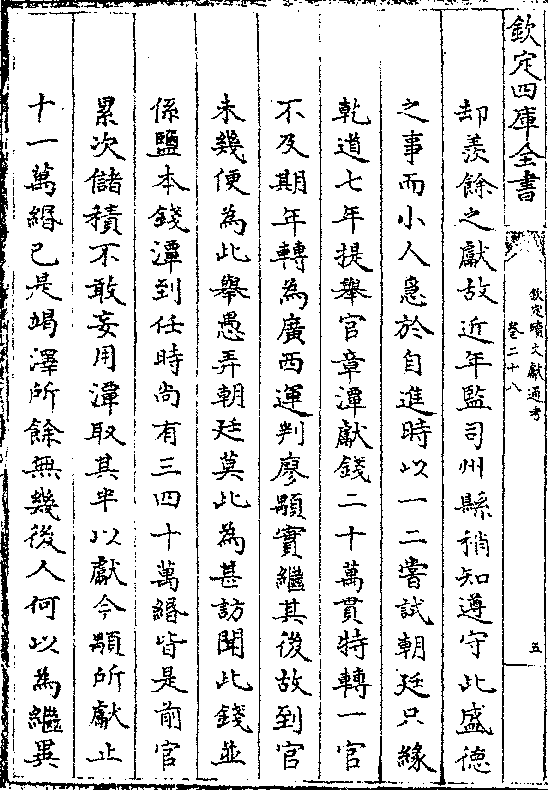 欽定四庫全書
欽定續文獻通考
卷二十八
五
却羨餘之獻故近年監司州縣稍知遵守此盛德
之事而小人急於自進時以一二嘗試朝廷只緣
乾道七年提舉官章潭獻錢二十萬貫特轉一官
不及期年轉為廣西運判廖顒實繼其後故到官
未幾便為此舉愚弄朝廷莫此為甚訪聞此錢並
係鹽本錢潭到任時尚有三四十萬緡皆是前官
累次儲積不敢妄用潭取其半以獻今顒所獻止
十一萬緡已是竭澤所餘無幾後人何以為繼異